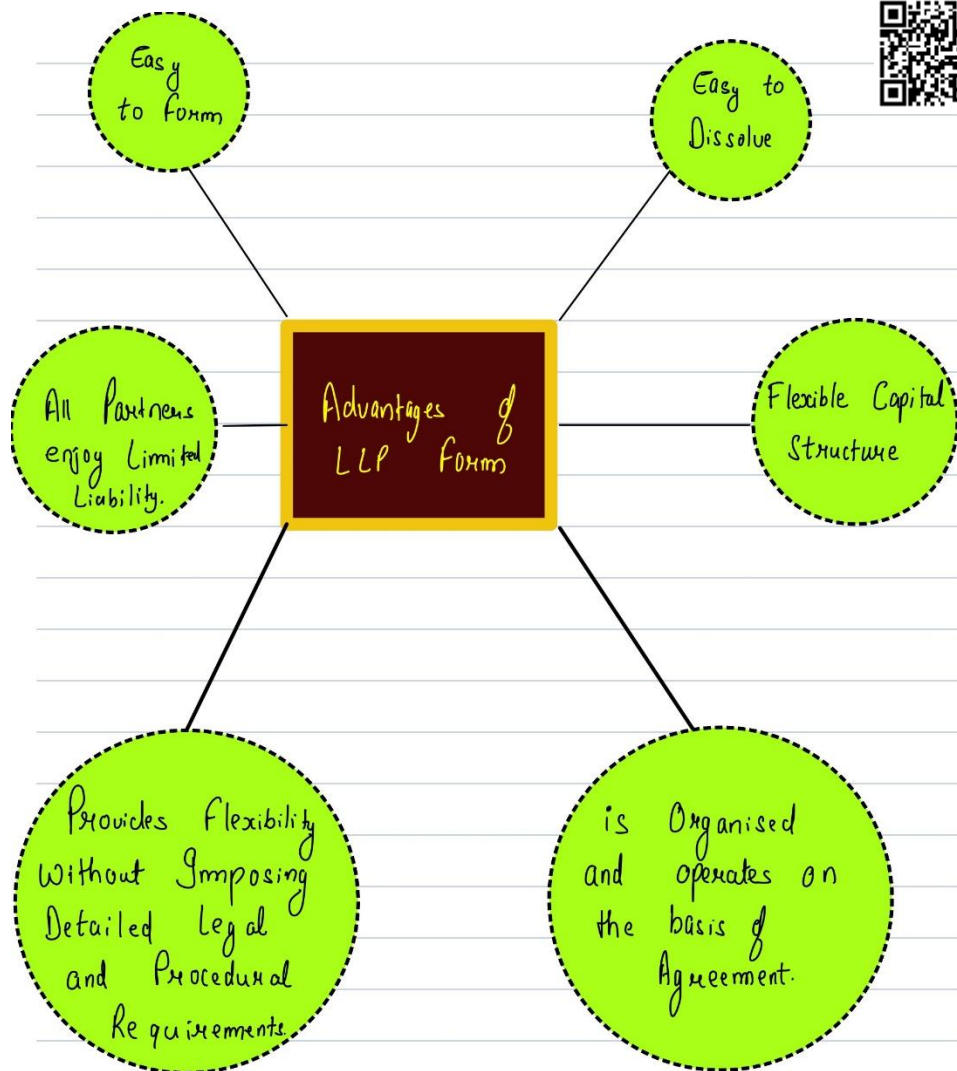 Easy
to Form
Easy to
Dissolve
All Partners
enjoy Limited
Liability.
Advantages of
LLP Form
Flexible Capital
Structure
Provides Flexibility
without Imposing
Detailed Legal
and Procedural
Requirements.
is Organised
and operates on
the basis of
Agreement.